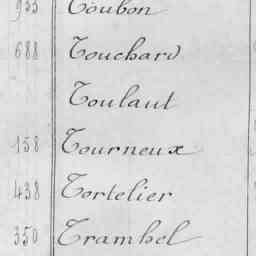 933 Toubon
688 Touchard
Toulaut
158 Tourneux
438 Tortelier
350 Trambel